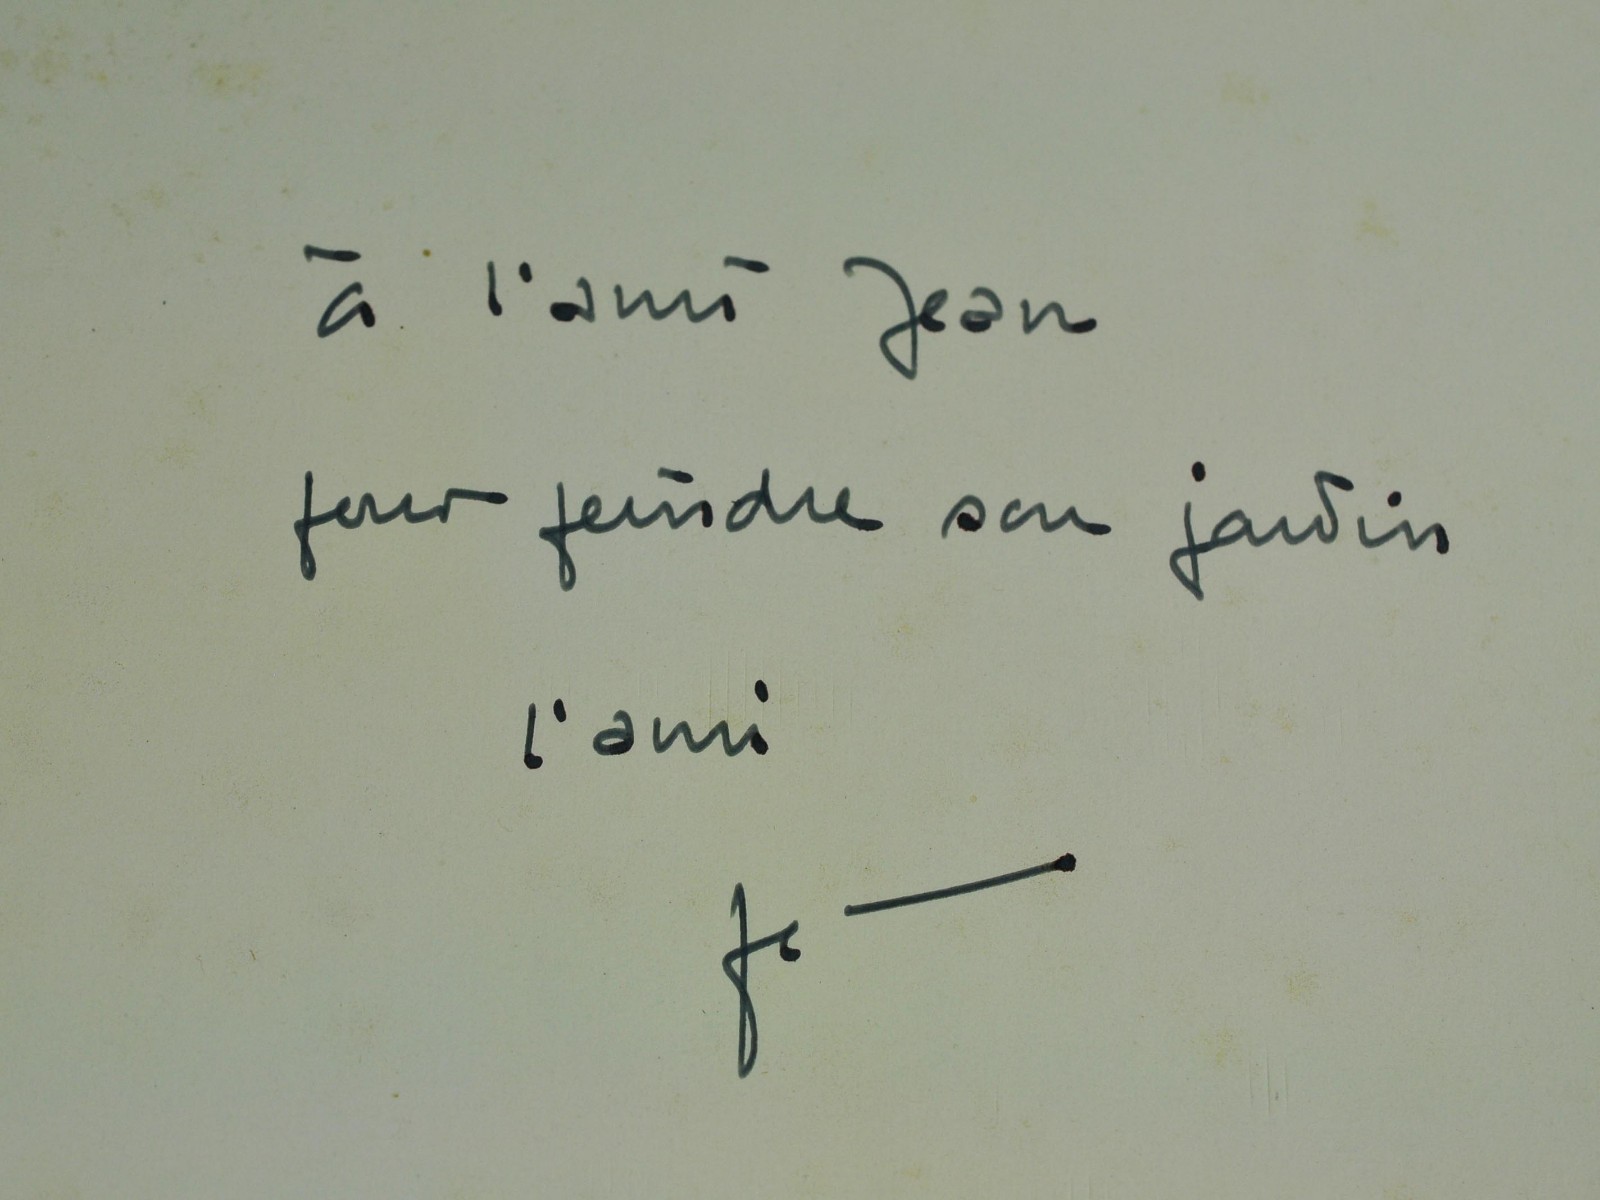 à l'ami Jean
pour peindre son jardin
l'ami